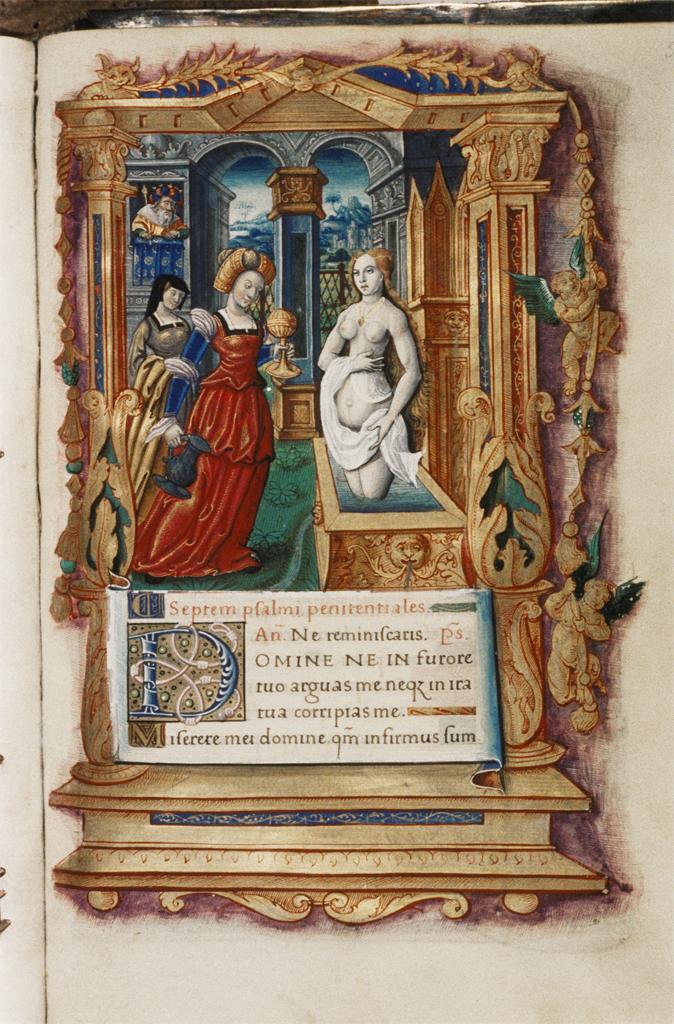 Septem psalmi penitentiales.
An. Ne reminiscaris. Ps.
DOMINE NE IN furore
tuo arguas me neqꝫ in ira
tua corripias me.
Miserere mei domine. qm̄ infirmus sum